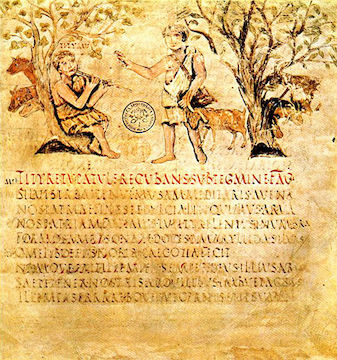 TITYRETVPATVLERECVBANSSVBTEGMINEFAGI
SILVESTREMTENVIMVSAMMEDITARISAVENA
NOSPATRIAEFINESETDVLCIALINQVIMVSARVA
NOSPATRIAMFVGIMVSTVTITYRELENTVSINVMBRA
FORMOSAMRESONAREDOCESAMARYLLIDASILVAS
OMELIBOEEDEVSNOBISHAECOTIAFECIT
NAMQVEERITILLEMIHISEMPERDEVSILLIVSARAM
SAEPETENERNOSTRISABOVILIBVSIMBVETAGNVS
ILLEMEASERRAREBOVESVTCERNISETIPSVM